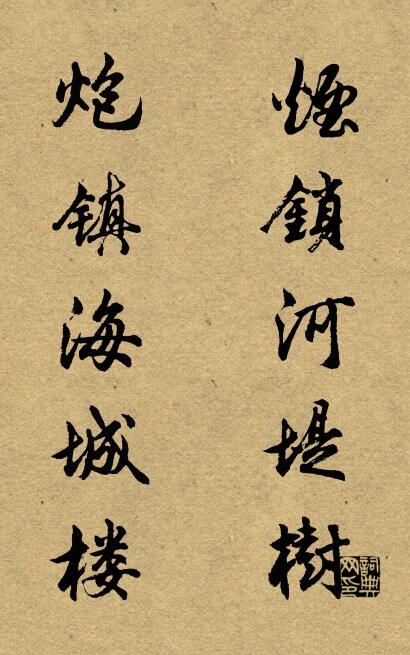 煙鎖河堤樹
炮镇海城楼
詞典网印